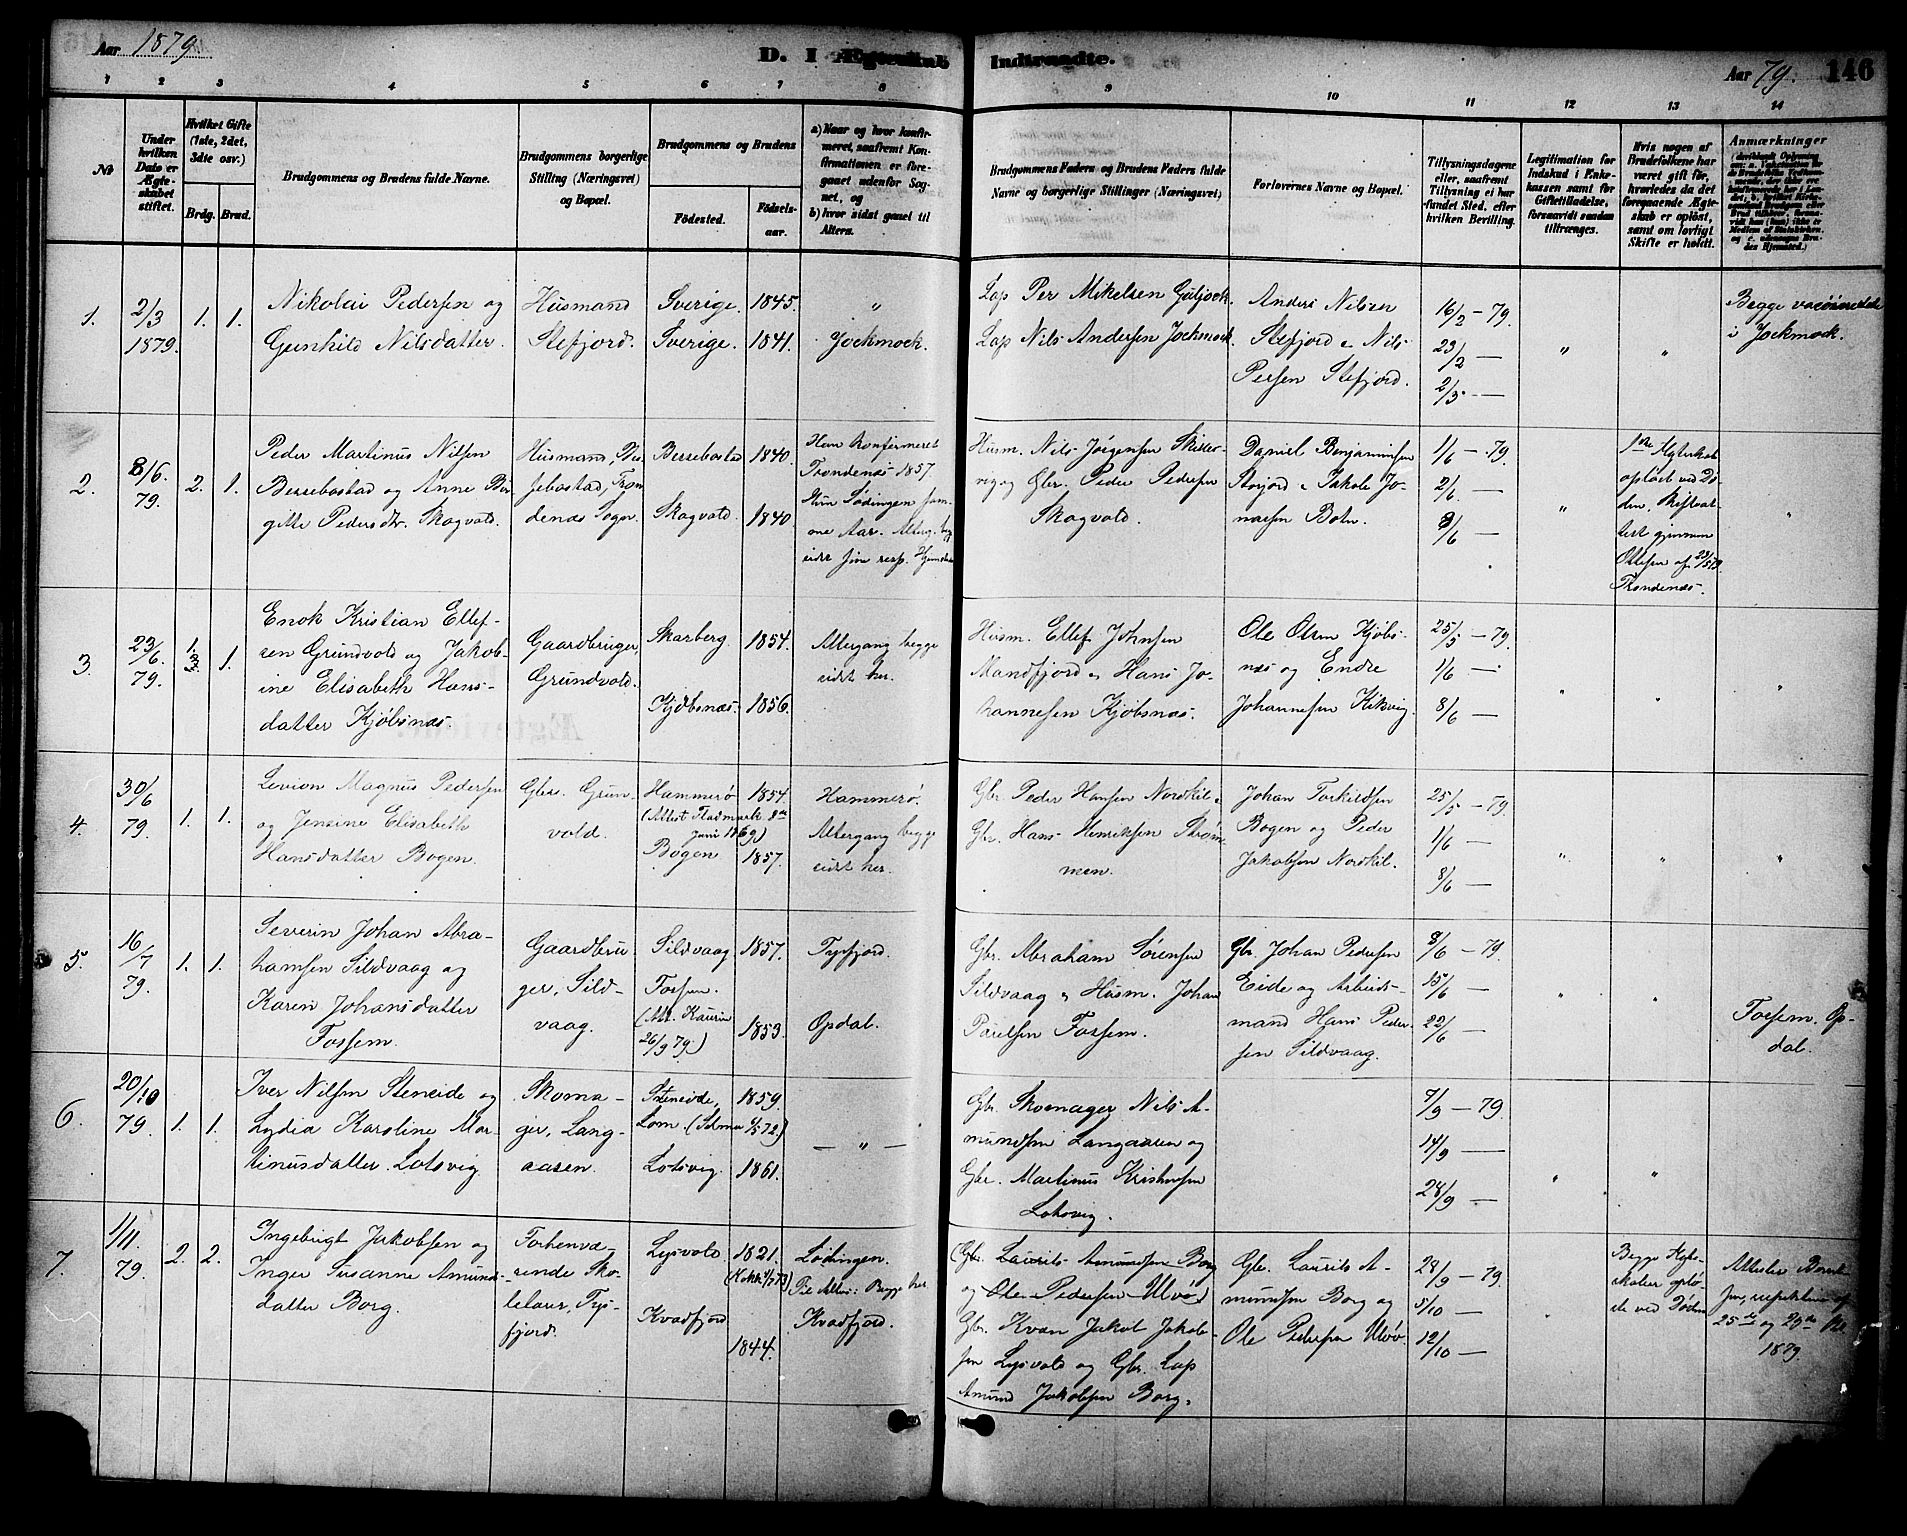 Aar 1879.
D. I Ægteskab Indtraadte.
Aar 79.
146
1 2 3 4 5 6 7 8 9 10 11 12 13 14
№
Under hvilken Dato er Ægteskabet stiftet.
Hvilket Gifte (1ste, 2det, 3dte osv.)
Brdg. Brud.
Brudgommens og Brudens fulde Navne.
Brudgommens borgerlige Stilling (Næringsvei) og Bopæl.
Brudgommens og Brudens
Fødested.
Fødselsaar.
a) Naar og hvor konfirmeret, saafremt Konfirmationen er foregaaet udenfor Sognet, og
b) hvor sidst gaaet til Alters.
Brudgommens Faders og Brudens Faders fulde Navne og borgerlige Stillinger (Næringsvei).
Forlovernes Navne og Bopæl.
Tillysningsdagene eller, saafremt Tillysning ei har fundet Sted, efter hvilken Bevilling.
Legitimation for Indskud i Enkekassen samt for Giftetilladelse, forsaavidt saadan tiltrænges.
Hvis nogen af Brudefolkene har været gift før, hvorledes da det foregaaende Ægteskab er opløst, samt om lovligt Skifte er holdt.
Anmærkninger
1.
2/3
1879.
1. 1.
Nikolai Pedersen og
Gunhild Nilsdatter.
Husmand
Stefjord.
Sverige. 1845.
Sverige. 1841.
"
Jockmock.
Lap Per Mikelsen Guljock.
Lap Nils Andersen Jockmock.
Anders Nilsen
Stefjord & Nils
Persen Stefjord.
16/2 - 79.
23/2 —
2/3 —
"
"
Begge vaccinerede
i Jockmock.
2.
8/6
79.
2. 1.
Peder Martinus Nilsen
Bersebostad og Anne Bir-
gitte Pedersdtr. Skogvold.
Husmand, Ber-
sebostad, Tron
denæs Sogn.
Bersebostad 1840.
Skogvold. 1840.
Han konfirmeret
Trondenæs 1857.
Hun Lødingen sam-
me Aar. Alterg. beg
sidst sine resp. Hjemsteder
Husm. Nils Jørgensen Skitter-
vig og Gbr. Peder Pedersen
Skogvold.
Daniel Benjaminsen
Storjord & Jakob Jo-
nassen Botn.
1/6 - 79.
2/6 —
8/6 —
"
1ste Ægteskab
opløst ved Dø-
den, Skifteat-
test gjennem
Ottesen af 23/5 79.
Trondenæs.
"
3.
23/6
79.
1. 1.
Enok Kristian Ellef-
sen Grundvold og Jakob-
ine Elisabeth Hans-
datter Kjøbsnæs.
Gaardbruger,
Grundvold.
Skarberg. 1854.
Kjøbsnæs. 1856.
Altergang begge
sidst her.
Husm. Ellef Johnsen
Mandfjord & Hans Jo-
hannesen Kjøbsnæs.
Ole Olsen Kjøbs-
næs og Endre
Johannesen Kikvig.
25/5 - 79.
1/6 —
8/6 —
"
"
"
4.
30/6
79.
1. 1.
Levion Magnus Pedersen
og Jensine Elisabeth
Hansdatter Bogen.
Gbr. Grun-
vold.
Hammerø 1854.
(Attest Fladmark 9de
Juni 1869)
Bogen 1857.
Hammerø.
Altergang begge
sidst her.
Gbr. Peder Hansen Nordkil &
Gbr. Hans Henriksen Strøm-
men.
Johan Torkildsen
Bogen og Peder
Jakobsen Nordkil.
25/5 - 79.
1/6 —
8/6 —
"
"
"
5.
16/7
79.
1. 1.
Severin Johan Abra-
hamsen Sildvaag og
Karen Johansdatter
Fossem.
Gaardbru
ger, Sild-
vaag.
Sildvaag 1857.
Fossem.
(Att. Kaurin
26/9 79.)
1853.
Tysfjord.
Opdal.
Gbr. Abraham Sørensen
Sildvaag & Husm. Johan
Poulsen Fossem.
Gbr. Johan Pedersen
Eide og Arbeids-
mand Hans Peder-
sen Sildvaag.
8/6 - 79.
15/6 —
22/6 —
"
"
Fossem. Op-
dal.
6.
20/10
79.
1. 1.
Iver Nilsen Steneide og
Lydia Karoline Mar-
tinusdatter Lotsvig
Skoma-
ger, Lang-
aasen.
Steneide, 1859.
Lom.
Lotsvig. 1861.
— " —
Gbr. Skomager Nils A-
mundsen Langaasen og
Gbr. Martinus Kristensen
Lotsvig.
7/9 - 79.
14/9 —
28/9 —
"
"
7.
1/11.
79.
2. 2.
Ingebrigt Jakobsen og
Inger Susanne Amund-
datter Borg.
Forhenvæ-
rende Sko-
lelærer, Tys-
fjord.
Lysvold 1821.
Kvadfjord
1844.
Lødingen.
Til Alters: Begge her.
Kvadfjord.
(Gbr. Laurits Amundsen Borg
og Ole Pedersen Ulvø)
Gbr. Kvæn Jakob Jakob-
sen Lysvold og Gbr. Lap
Amund Jakobsen Borg.
Gbr. Laurits A-
mundsen Borg og
Ole Pedersen Ulvø.
28/9 - 79.
5/10 —
12/10 —
"
Begge Ægte-
skaber oplø-
ste ved Døden
25de og 29de
1879.